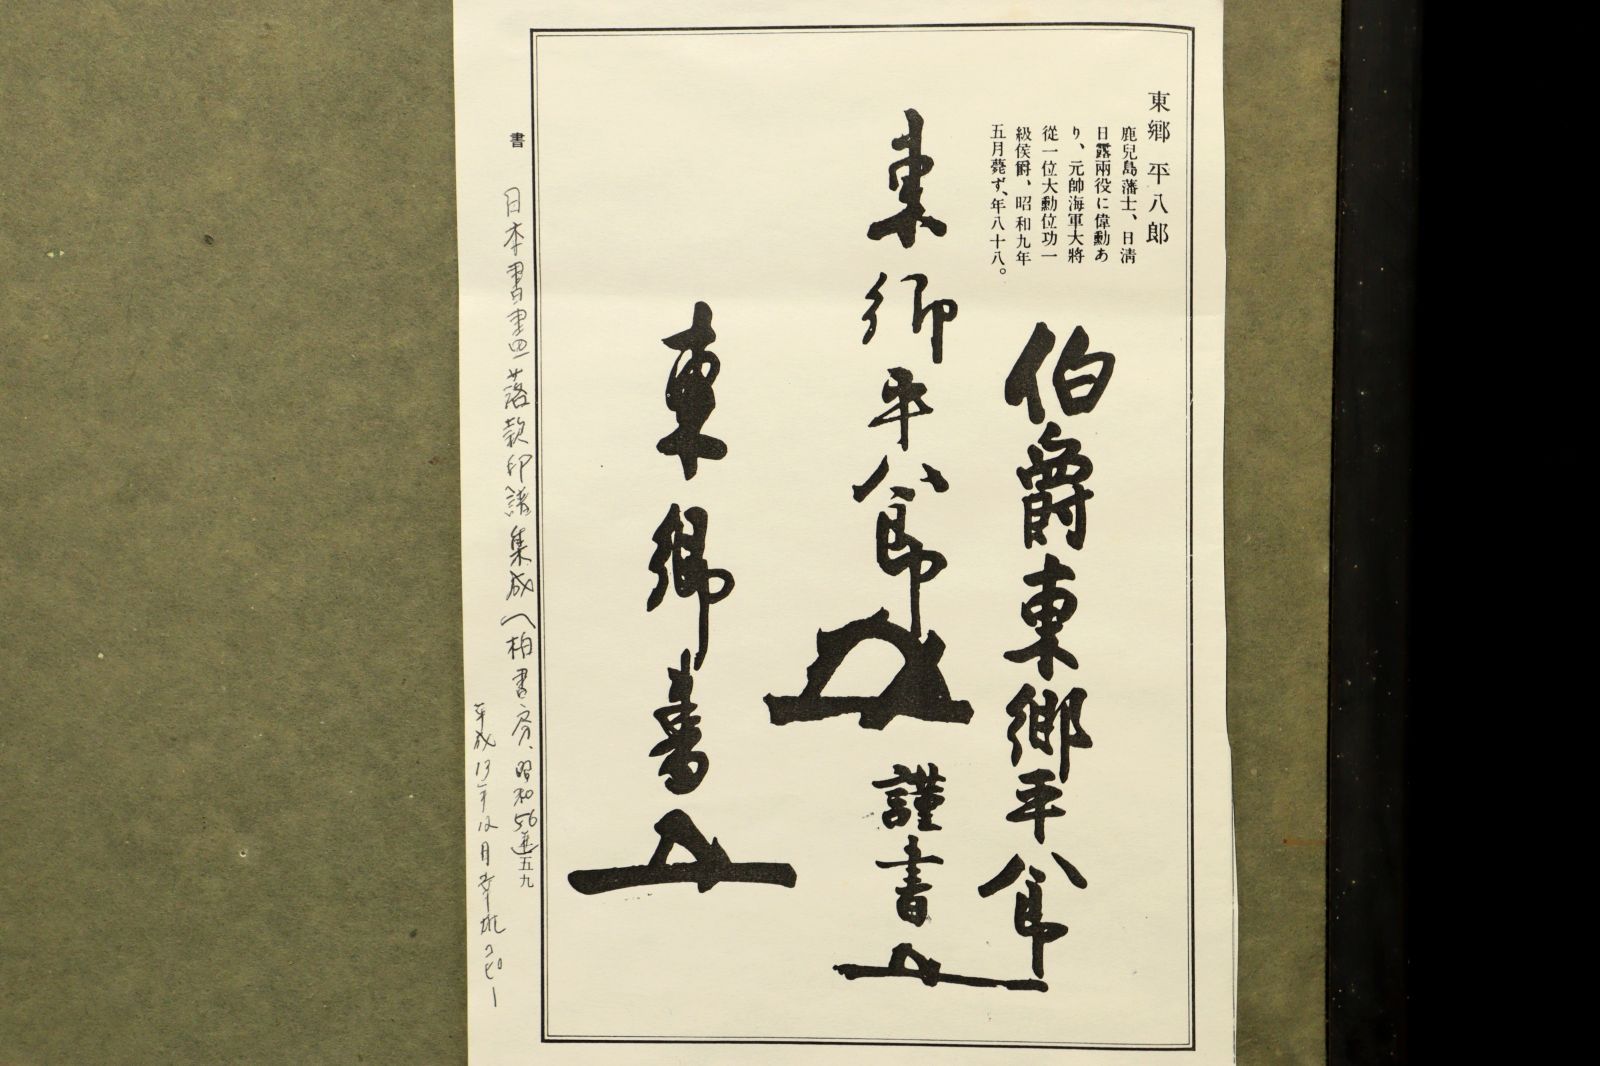 東郷平八郎
鹿兒島藩士、日清
日露兩役に偉勳あ
り、元帥海軍大將
從一位大勳位功一
級侯爵、昭和九年
五月薨ず、年八十八。
伯爵東郷平八郎
東郷平八郎
謹書
東郷書
書
五九
日本書画落款印譜集成〈柏書房、昭和56年
平成13年12月
コピー